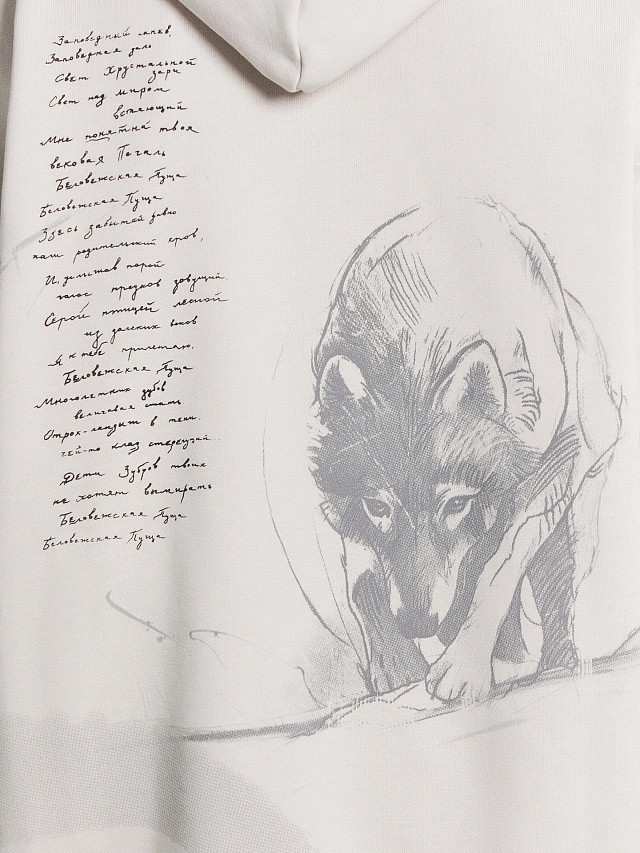 Заповедный напев,
Заповедная даль
Свет Хрустальной
зари
Свет над миром
встающий
Мне понятна твоя
вековая Печаль
Беловежская Пуща
Беловежская Пуща
Здесь забытый давно
наш родительский кров,
И, услышав порой
голос предков зовущий.
Серой птицей лесной
из далеких веков
Я к тебе прилетаю.
Беловежская Пуща
Многолетних дубов
величавая стать
Отрок-ландыш в тени.
чей-то клад стерегущий.
Дети Зубров твоих
не хотят вымирать
Беловежская Пуща
Беловежская Пуща